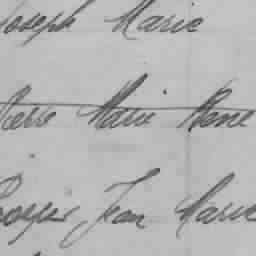 Joseph Marie
Pierre Marie René
Georges Jean Marie